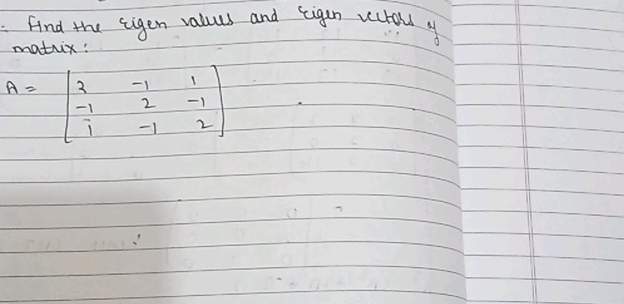 : find the eigen values and eigen vectors of
matrix:
A = [ 2 -1 1
-1 2 -1
1 -1 2 ]